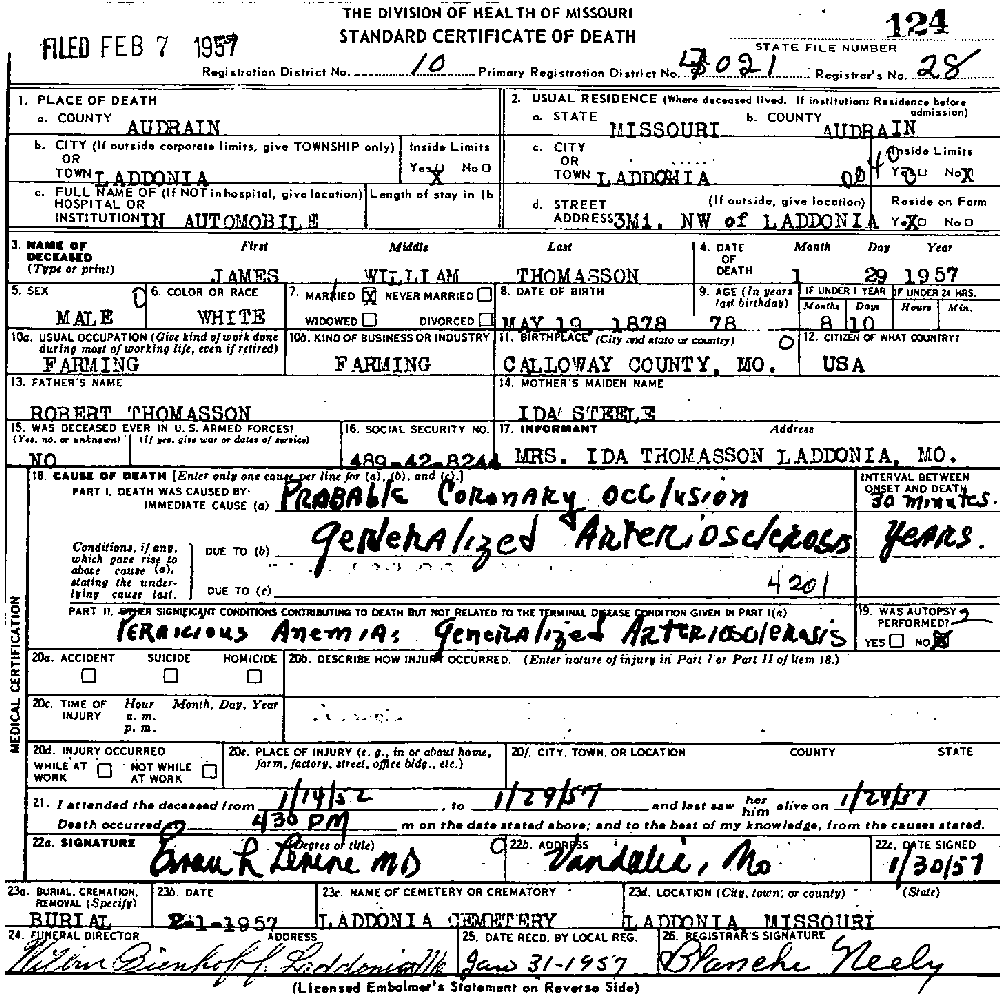 THE DIVISION OF HEALTH OF MISSOURI
124
FILED FEB 7 1957
STANDARD CERTIFICATE OF DEATH
STATE FILE NUMBER
Registration District No. 10 Primary Registration District No. 3021 Registrar's No. 28
1. PLACE OF DEATH
a. COUNTY AUDRAIN
2. USUAL RESIDENCE (Where deceased lived. If institution: Residence before admission)
a. STATE MISSOURI b. COUNTY AUDRAIN
b. CITY (If outside corporate limits, give TOWNSHIP only) OR TOWN LADDONIA
Inside Limits Yes X No
c. CITY OR TOWN LADDONIA 0040
Inside Limits Yes No X
c. FULL NAME OF (If NOT in hospital, give location) HOSPITAL OR INSTITUTION IN AUTOMOBILE
Length of stay in 1b
d. STREET ADDRESS (If outside, give location) 3Mi. NW of LADDONIA
Reside on Farm Yes X No
3. NAME OF DECEASED (Type or print)
First Middle Last
JAMES WILLIAM THOMASSON
4. DATE OF DEATH Month Day Year
1 29 1957
5. SEX MALE
6. COLOR OR RACE WHITE
7. MARRIED X NEVER MARRIED
WIDOWED DIVORCED
8. DATE OF BIRTH MAY 19 1878
9. AGE (In years last birthday) 78
IF UNDER 1 YEAR Months 8 Days 10
IF UNDER 24 HRS. Hours Min.
10a. USUAL OCCUPATION (Give kind of work done during most of working life, even if retired) FARMING
10b. KIND OF BUSINESS OR INDUSTRY FARMING
11. BIRTHPLACE (City and state or country) CALLOWAY COUNTY, MO.
12. CITIZEN OF WHAT COUNTRY? USA
13. FATHER'S NAME ROBERT THOMASSON
14. MOTHER'S MAIDEN NAME IDA STEELE
15. WAS DECEASED EVER IN U.S. ARMED FORCES? (Yes, no. or unknown) (If yes, give war or dates of service) NO
16. SOCIAL SECURITY NO. 489-42-8244
17. INFORMANT Address
MRS. IDA THOMASSON LADDONIA, MO.
18. CAUSE OF DEATH [Enter only one cause per line for (a), (b), and (c).]
INTERVAL BETWEEN ONSET AND DEATH
PART I. DEATH WAS CAUSED BY:
IMMEDIATE CAUSE (a) Probable Coronary occlusion 30 minutes.
Conditions, if any, which gave rise to above cause (a), stating the underlying cause last.
DUE TO (b) Generalized Arteriosclerosis years.
DUE TO (c) 4201
PART II. OTHER SIGNIFICANT CONDITIONS CONTRIBUTING TO DEATH BUT NOT RELATED TO THE TERMINAL DISEASE CONDITION GIVEN IN PART I(a)
Pernicious Anemia; Generalized Arteriosclerosis
19. WAS AUTOPSY PERFORMED? 2
YES NO X
MEDICAL CERTIFICATION
20a. ACCIDENT SUICIDE HOMICIDE
20b. DESCRIBE HOW INJURY OCCURRED. (Enter nature of injury in Part I or Part II of item 18.)
20c. TIME OF INJURY Hour Month, Day, Year
a. m.
p. m.
20d. INJURY OCCURRED
WHILE AT WORK NOT WHILE AT WORK
20e. PLACE OF INJURY (e. g., in or about home, farm, factory, street, office bldg., etc.)
20f. CITY, TOWN, OR LOCATION COUNTY STATE
21. I attended the deceased from 1/14/52, to 1/29/57 and last saw her him alive on 1/29/57
Death occurred 430 PM m on the date stated above; and to the best of my knowledge, from the causes stated.
22a. SIGNATURE (Degree or title) L Levine MD
22b. ADDRESS Vandalia, Mo
22c. DATE SIGNED 1/30/57
23a. BURIAL, CREMATION, REMOVAL (Specify) BURIAL
23b. DATE 2-1-1957
23c. NAME OF CEMETERY OR CREMATORY LADDONIA CEMETERY
23d. LOCATION (City, town, or county) (State) LADDONIA MISSOURI
24. FUNERAL DIRECTOR ADDRESS
Wilbur Bienhoff Laddonia Mo
25. DATE RECD. BY LOCAL REG. Jan 31-1957
26. REGISTRAR'S SIGNATURE Blanche Neely
(Licensed Embalmer's Statement on Reverse Side)